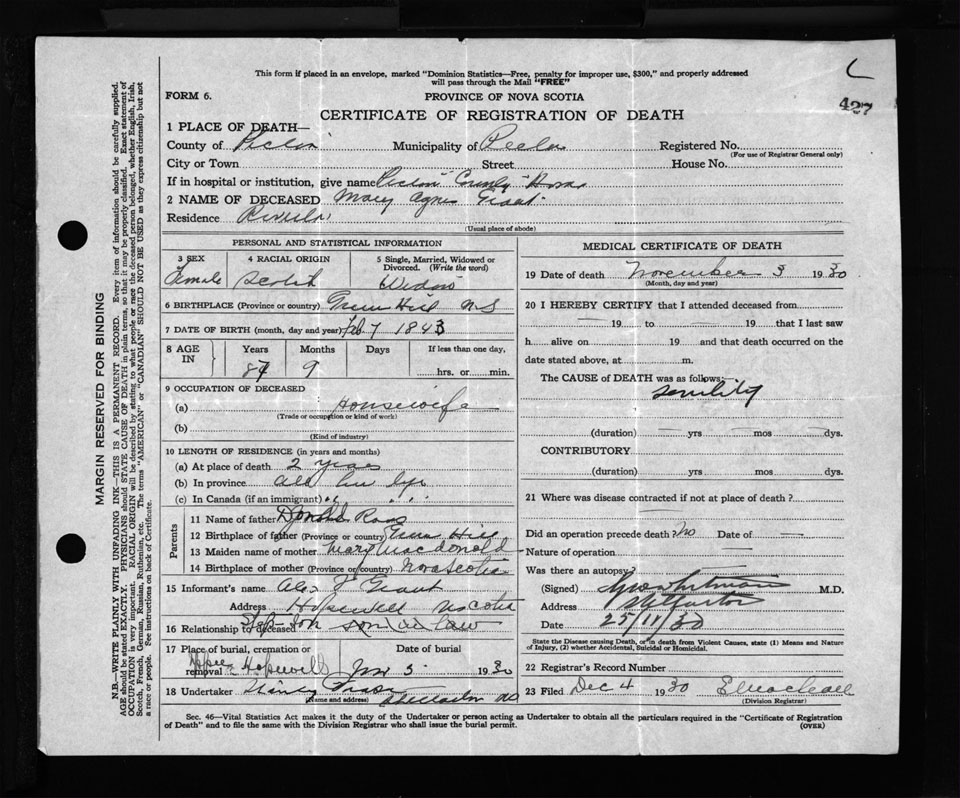 This form if placed in an envelope, marked "Dominion Statistics—Free, penalty for improper use, $300," and properly addressed
will pass through the Mail "FREE"
FORM 6.
PROVINCE OF NOVA SCOTIA
427
CERTIFICATE OF REGISTRATION OF DEATH
1 PLACE OF DEATH—
County of Pictou Municipality of Pictou Registered No.
(For use of Registrar General only)
City or Town Street House No.
If in hospital or institution, give name Pictou County Home
2 NAME OF DECEASED Mary Agnes Grant
Residence
(Usual place of abode)
PERSONAL AND STATISTICAL INFORMATION
3 SEX 4 RACIAL ORIGIN 5 Single, Married, Widowed or Divorced. (Write the word)
Female Scotch Widow
6 BIRTHPLACE (Province or country) Green Hill N S
7 DATE OF BIRTH (month, day and year) Feb 7 1843
8 AGE IN Years Months Days If less than one day,
87 9 hrs. or min.
9 OCCUPATION OF DECEASED
(a) Housewife
(Trade or occupation or kind of work)
(b)
(Kind of industry)
10 LENGTH OF RESIDENCE (in years and months)
(a) At place of death 2 years
(b) In province all her life
(c) In Canada (if an immigrant) " " "
Parents
11 Name of father Donald Ross
12 Birthplace of father (Province or country) Hill
13 Maiden name of mother Mary MacDonald
14 Birthplace of mother (Province or country) Nova Scotia
15 Informant's name Alex J Grant
Address Hopewell N Scotia
16 Relationship to deceased Step-son son in law
17 Place of burial, cremation or removal Date of burial
Hopewell Nov 5 1930
18 Undertaker
(Name and address)
MEDICAL CERTIFICATE OF DEATH
19 Date of death November 3 1930
(Month, day and year)
20 I HEREBY CERTIFY that I attended deceased from
— 19 to — 19 that I last saw
h alive on 19 and that death occurred on the
date stated above, at m.
The CAUSE of DEATH was as follows:—
Senility
(duration) — yrs — mos — dys.
CONTRIBUTORY
(duration) — yrs. — mos. — dys.
21 Where was disease contracted if not at place of death?
Did an operation precede death? No Date of —
Nature of operation —
Was there an autopsy?
(Signed) M.D.
Address
Date 25/11/30
State the Disease causing Death, or in death from Violent Causes, state (1) Means and Nature
of Injury, (2) whether Accidental, Suicidal or Homicidal.
22 Registrar's Record Number
23 Filed Dec 4 1930
(Division Registrar)
Sec. 46—Vital Statistics Act makes it the duty of the Undertaker or person acting as Undertaker to obtain all the particulars required in the "Certificate of Registration
of Death" and to file the same with the Division Registrar who shall issue the burial permit.
(OVER)
MARGIN RESERVED FOR BINDING
N.B.—WRITE PLAINLY WITH UNFADING INK—THIS IS A PERMANENT RECORD. Every item of information should be carefully supplied.
AGE should be stated EXACTLY. PHYSICIANS should STATE CAUSE OF DEATH in plain terms, so that it may be properly classified. Exact statement of
OCCUPATION is very important. RACIAL ORIGIN will be described by stating to what people or race the deceased person belonged, whether English, Irish,
Scotch, French, German, Russian, Ruthenian, etc. The terms "AMERICAN" or "CANADIAN" SHOULD NOT BE USED as they express citizenship but not
a race or people. See instructions on back of Certificate.